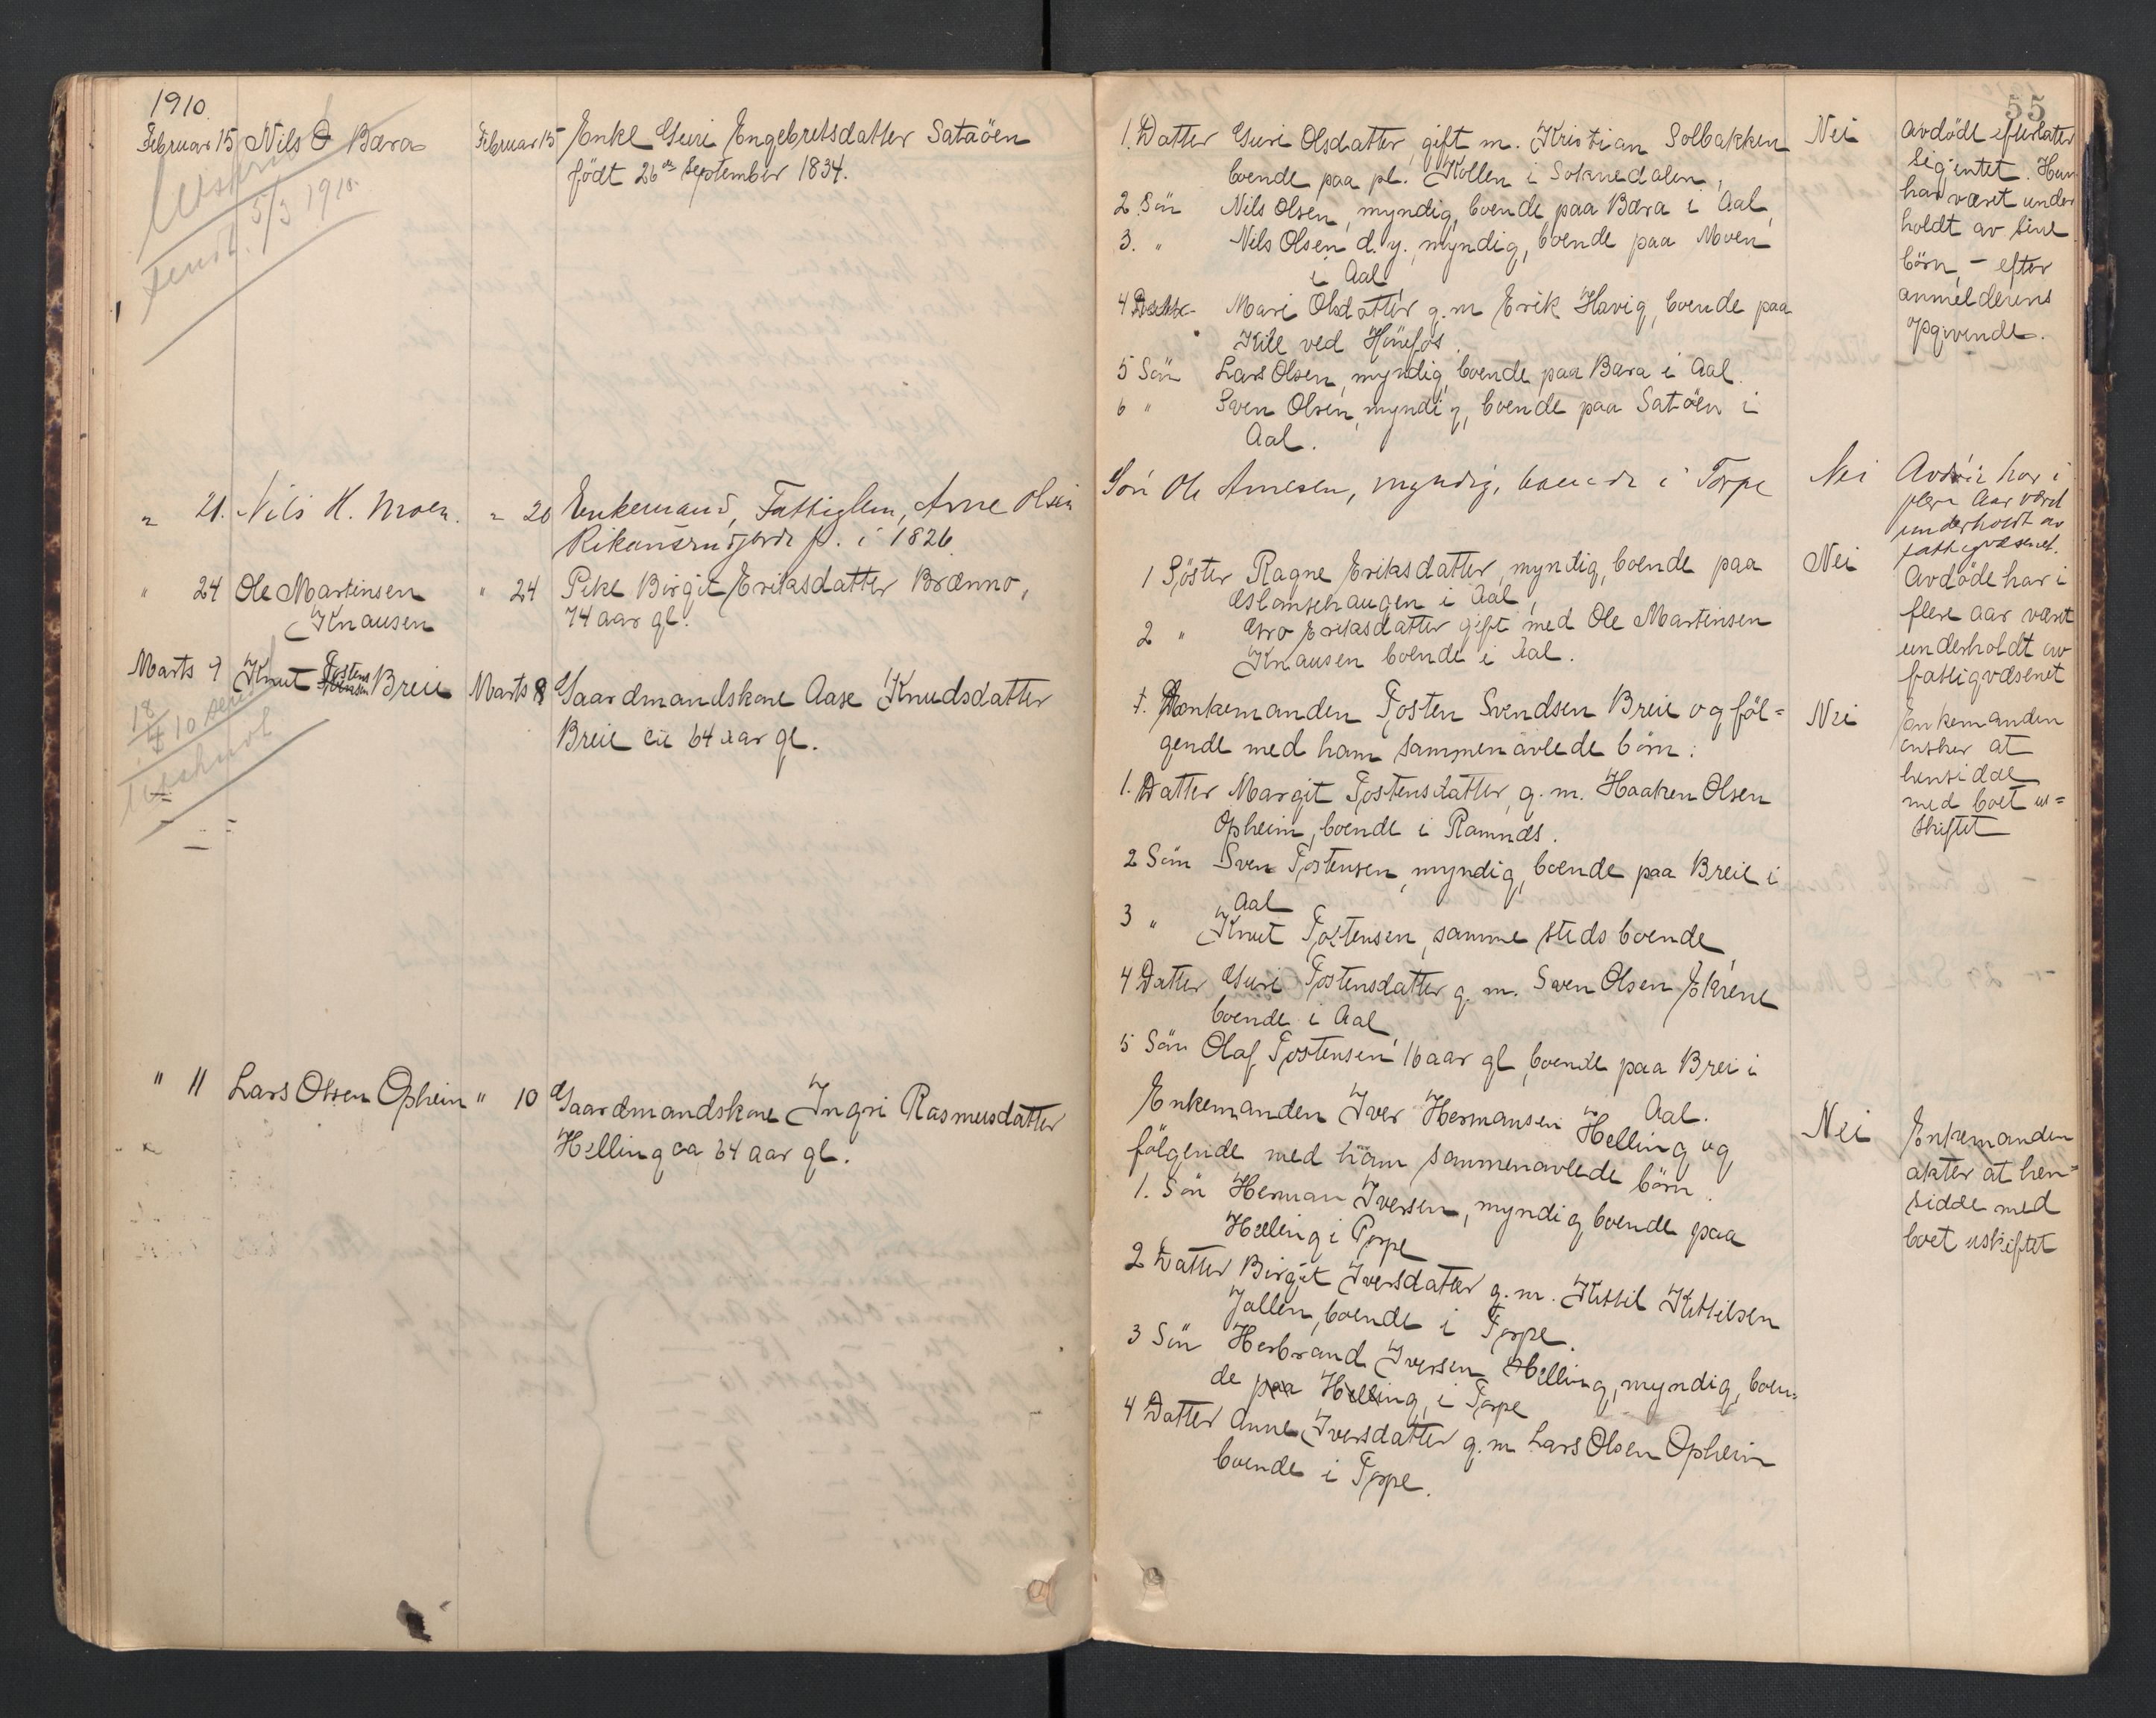 1910
55
Februar 15 Nils O Bæra Februar 15 Enke Guri Engebretsdatter Sataöen
födt 26de September 1834.
5/3 1910
1. Datter Guri Olsdatter, gift m. Kristian Solbakken
boende paa pl. Kollen i Soknedalen,
2. Sön Nils Olsen, myndig, boende paa Bæra i Aal,
3. " Nils Olsen d. y. myndig, boende paa Moen
i Aal
4 Datter Mari Olsdatter g. m Erik Havig, boende paa
Kile ved Hönefos.
5 Sön Lars Olsen, myndig, boende paa Bæra i Aal.
6 " Sven Olsen, myndig, boende paa Sataöen i
Aal.
Nei
Avdöde efterlater
sig intet. Hun
har været under
holdt av sine
börn, - efter
anmelderens
opgivende.
" 21. Nils H. Moen. " 20 Enkemand, Fattiglem, Arne Olsen
f. i 1826
Sön Ole Arnesen, myndig, boende i Torpe
Nei
Avdöde har i
flere Aar været
underholdt av
fattigvæsenet.
" 24 Ole Martinsen " 24 Pike Birgit Eriksdatter Brænno,
Knausen 74 aar gl.
1 Söster Ragne Eriksdatter, myndig, boende paa
Aslamsehaugen i Aal,
2 " Gro Eriksdatter gift med Ole Martinsen
Knausen boende i Aal.
Nei
Avdöde har i
flere aar været
underholdt av
fattigvæsenet
Marts 9 Knut Tostens Breie Marts 8 Gaardmandskone Aase Knudsdatter
Breie ca 64 aar gl.
18/4 10
Enkemanden Tosten Svendsen Breie og föl=
gende med ham sammenavlede börn:
1. Datter Margit Tostensdatter, g. m. Haaken Olsen
Opheim, boende i Ramnæs.
2 Sön Sven Tostensen, myndig, boende paa Breie i
Aal
3 " Knut Tostensen, samme steds boende
4 Datter Guri Tostensdatter g. m. Sven Olsen Ekrene
boende i Aal
5 Sön Olaf Tostensen 16 aar gl, boende paa Brei i
Aal.
Nei
Enkemanden
önsker at
hensidde
med boet u=
skiftet
" 11 Lars Olsen Opheim " 10 Gaardmandskone Ingri Rasmusdatter
Helling ca 64 aar gl.
Enkemanden Iver Hermansen Helling og
fölgende med ham sammenavlede börn.
1. Sön Herman Iversen, myndig, boende paa
Helling i Torpe
2 Datter Birgit Iversdatter g. m. Kittil Kittilsen
Jallen, boende i Torpe.
3 Sön Herbrand Iversen Helling, myndig, boen=
de paa Helling, i Torpe
4 Datter Anne Iversdatter g. m Lars Olsen Opheim
boende i Torpe.
Nei
Enkemanden
akter at hen=
sidde med
boet uskiftet